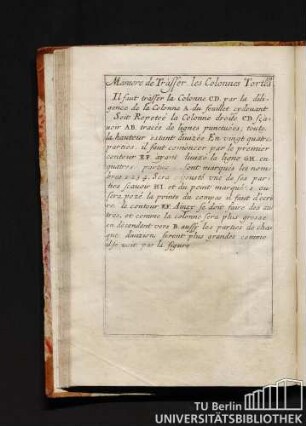 Maniere de Trasser les Colonnes Torses
Il faut trasser la Colonne CD. par la dili-
gence de la Colonne A. du feuillet cydevant
Soit Repeteé la Colonne droite CD. sça-
voir AB. tracée de lignes punctuées, toute
la hauteur estant divizée En vingt quatre
parties. il faut comencer par le premier
contour EF. ayant divizé la ligne GH. en
quatres parties sont marqués les nom-
bres 1.2.3.4. Sera une de ses par-
ties sçavoir HI. et du point marqué
sera pozé la pointe du compas il faut d'ecri-
re le contour EF. Ainsy se doit faire des au-
tres, et comme la colonne sera plus grosse
en descendent vers B. aussy les parties de cha-
que division seront plus grandes comme
il se voit par la figure
TU Berlin
UNIVERSITÄTSBIBLIOTHEK